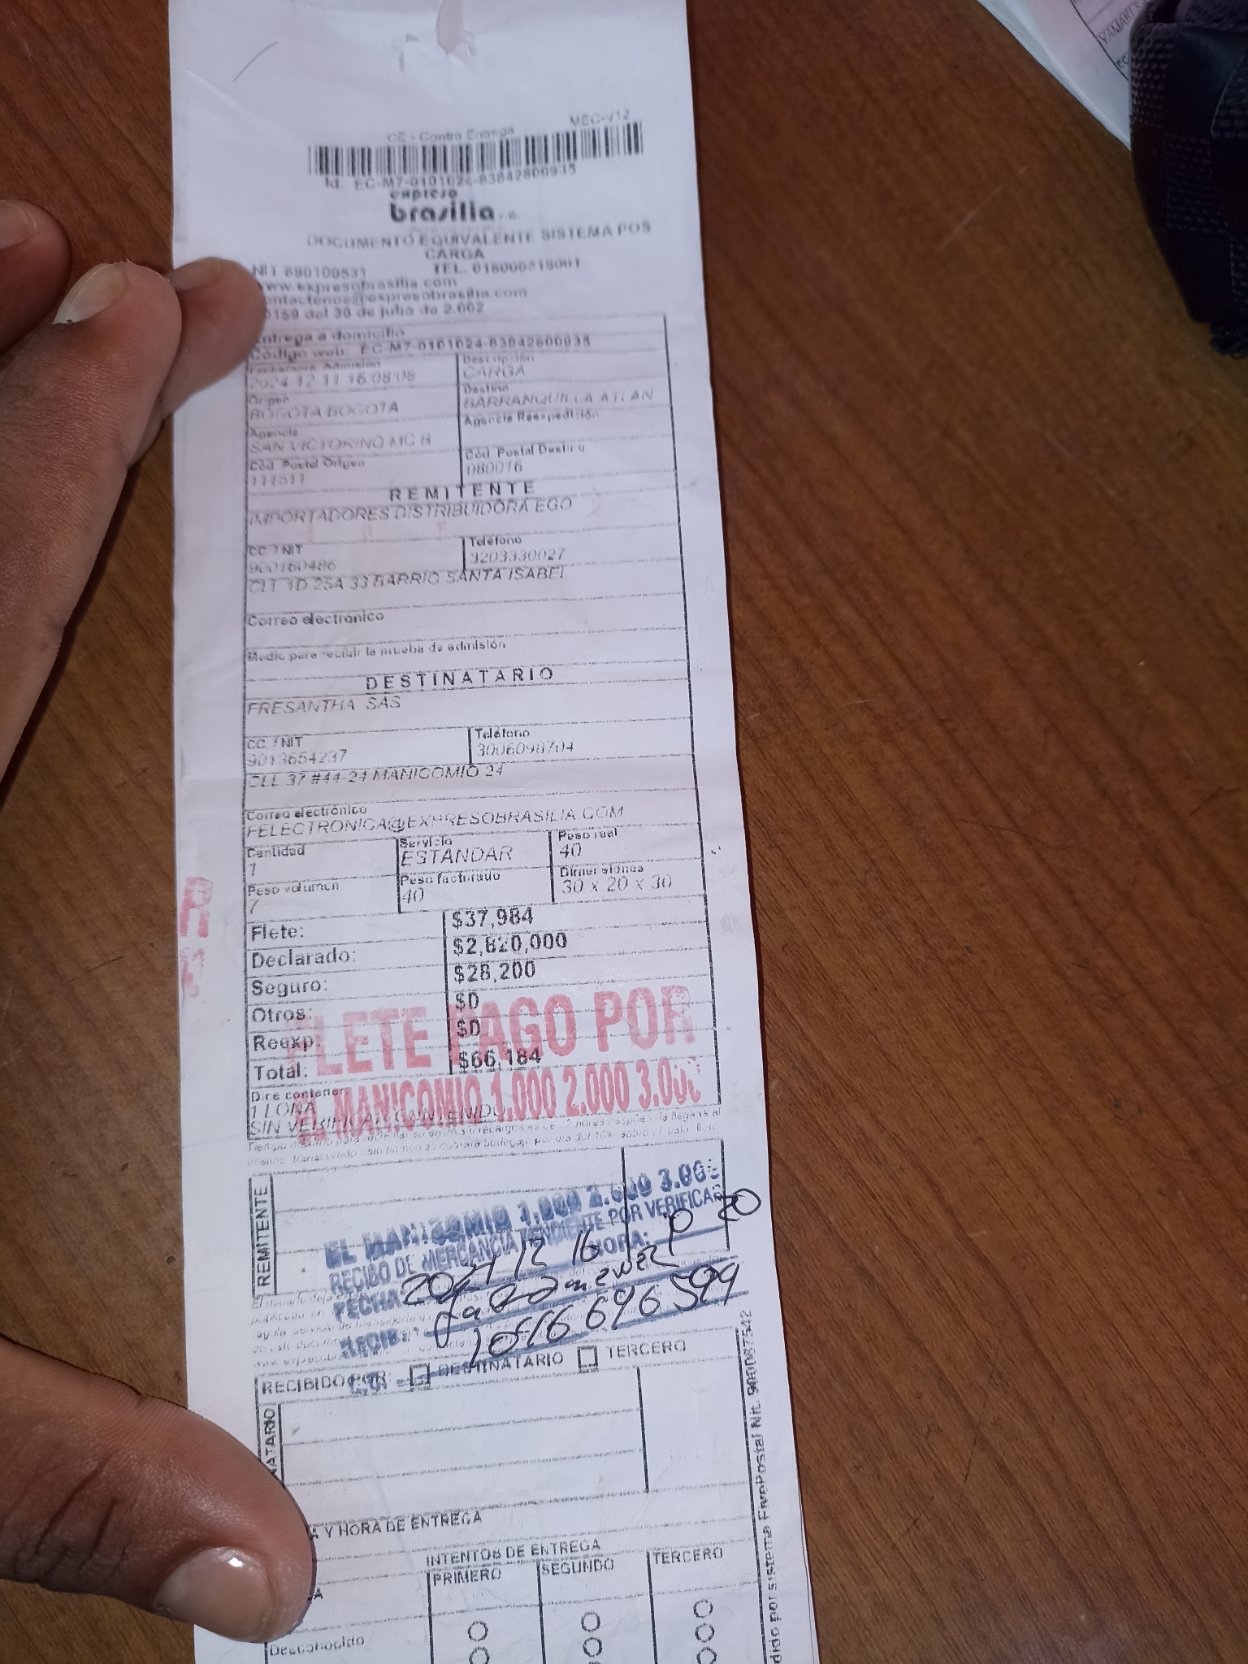 CE - Contra Entrega MEC-V12
Id: EC-M7-0101024-83842800935
expreso
brasilia s.a.
DOCUMENTO EQUIVALENTE SISTEMA POS
CARGA
NIT 890100531 TEL. 018000518001
www.expresobrasilia.com
contactenos@expresobrasilia.com
0159 del 30 de julio de 2.002
Entrega a domicilio
Código web: EC-M7-0101024-83842800935
Fecha/hora Admisión Descripción
2024-12-11 16:08:08 CARGA
Origen Destino
BOGOTA BOGOTA BARRANQUILLA ATLAN
Agencia Agencia Reexpedición
SAN VICTORINO MG B
Cód. Postal Origen Cód. Postal Destino
111611 080016
REMITENTE
IMPORTADORES DISTRIBUIDORA EGO
CC. / NIT Teléfono
900160486 3203330027
CLL 1D 25A 33 BARRIO SANTA ISABEL
Correo electrónico
Medio para recibir la prueba de admisión
DESTINATARIO
FRESANTHA SAS
CC. / NIT Teléfono
9013654237 3006098704
CLL 37 #44-24 MANICOMIO 24
Correo electrónico
FELECTRONICA@EXPRESOBRASILIA.COM
Cantidad Servicio Peso real
1 ESTANDAR 40
Peso volumen Peso facturado Dimensiones
7 40 30 x 20 x 30
Flete: $37,984
Declarado: $2,820,000
Seguro: $28,200
Otros: $0
Reexp: $0
Total: $66,184
FLETE PAGO POR
EL MANICOMIO 1.000 2.000 3.000
Dice contener
1 LONA
SIN VERIFICAR CONTENIDO
REMITENTE
EL MANICOMIO 1.000 2.000 3.000
RECIBO DE MERCANCIA PENDIENTE POR VERIFICAR
FECHA: 2024 12 16 HORA:
RECIBI:
RECIBIDO POR: DESTINATARIO TERCERO
NATARIO
A Y HORA DE ENTREGA
INTENTOS DE ENTREGA
PRIMERO SEGUNDO TERCERO
Desconocido
dido por sistema FivePostal Nit. 900087542